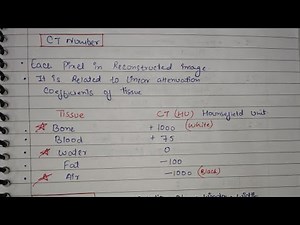 CT Number
• Each Pixel in Reconstructed image
• It is Related to linear attenuation
Coefficients of tissue
Tissue CT (HU) Hounsfield unit
Bone +1000 (White)
Blood + 75
Water 0
Fat -100
Air -1000 (Black)